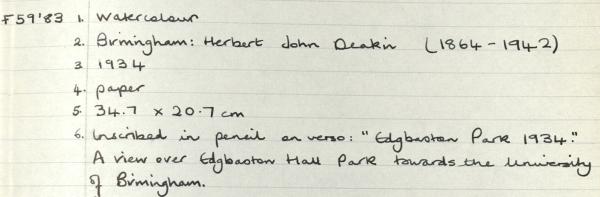 F59'83 1. Watercolour
2. Birmingham: Herbert John Deakin (1864-1942)
3 1934
4. paper
5. 34.7 x 20.7 cm
6. Inscribed in pencil on verso: "Edgbaston Park 1934."
A view over Edgbaston Hall Park towards the University
of Birmingham.